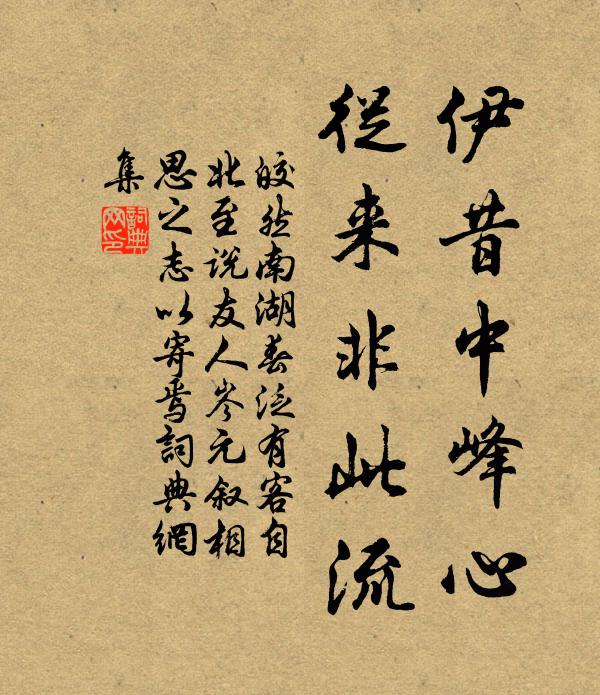 伊昔中峰心
從来非此流
皎然南湖春泛有客自
北至说友人岑元叙相
思之志以寄焉詞典網
集
詞典
网印